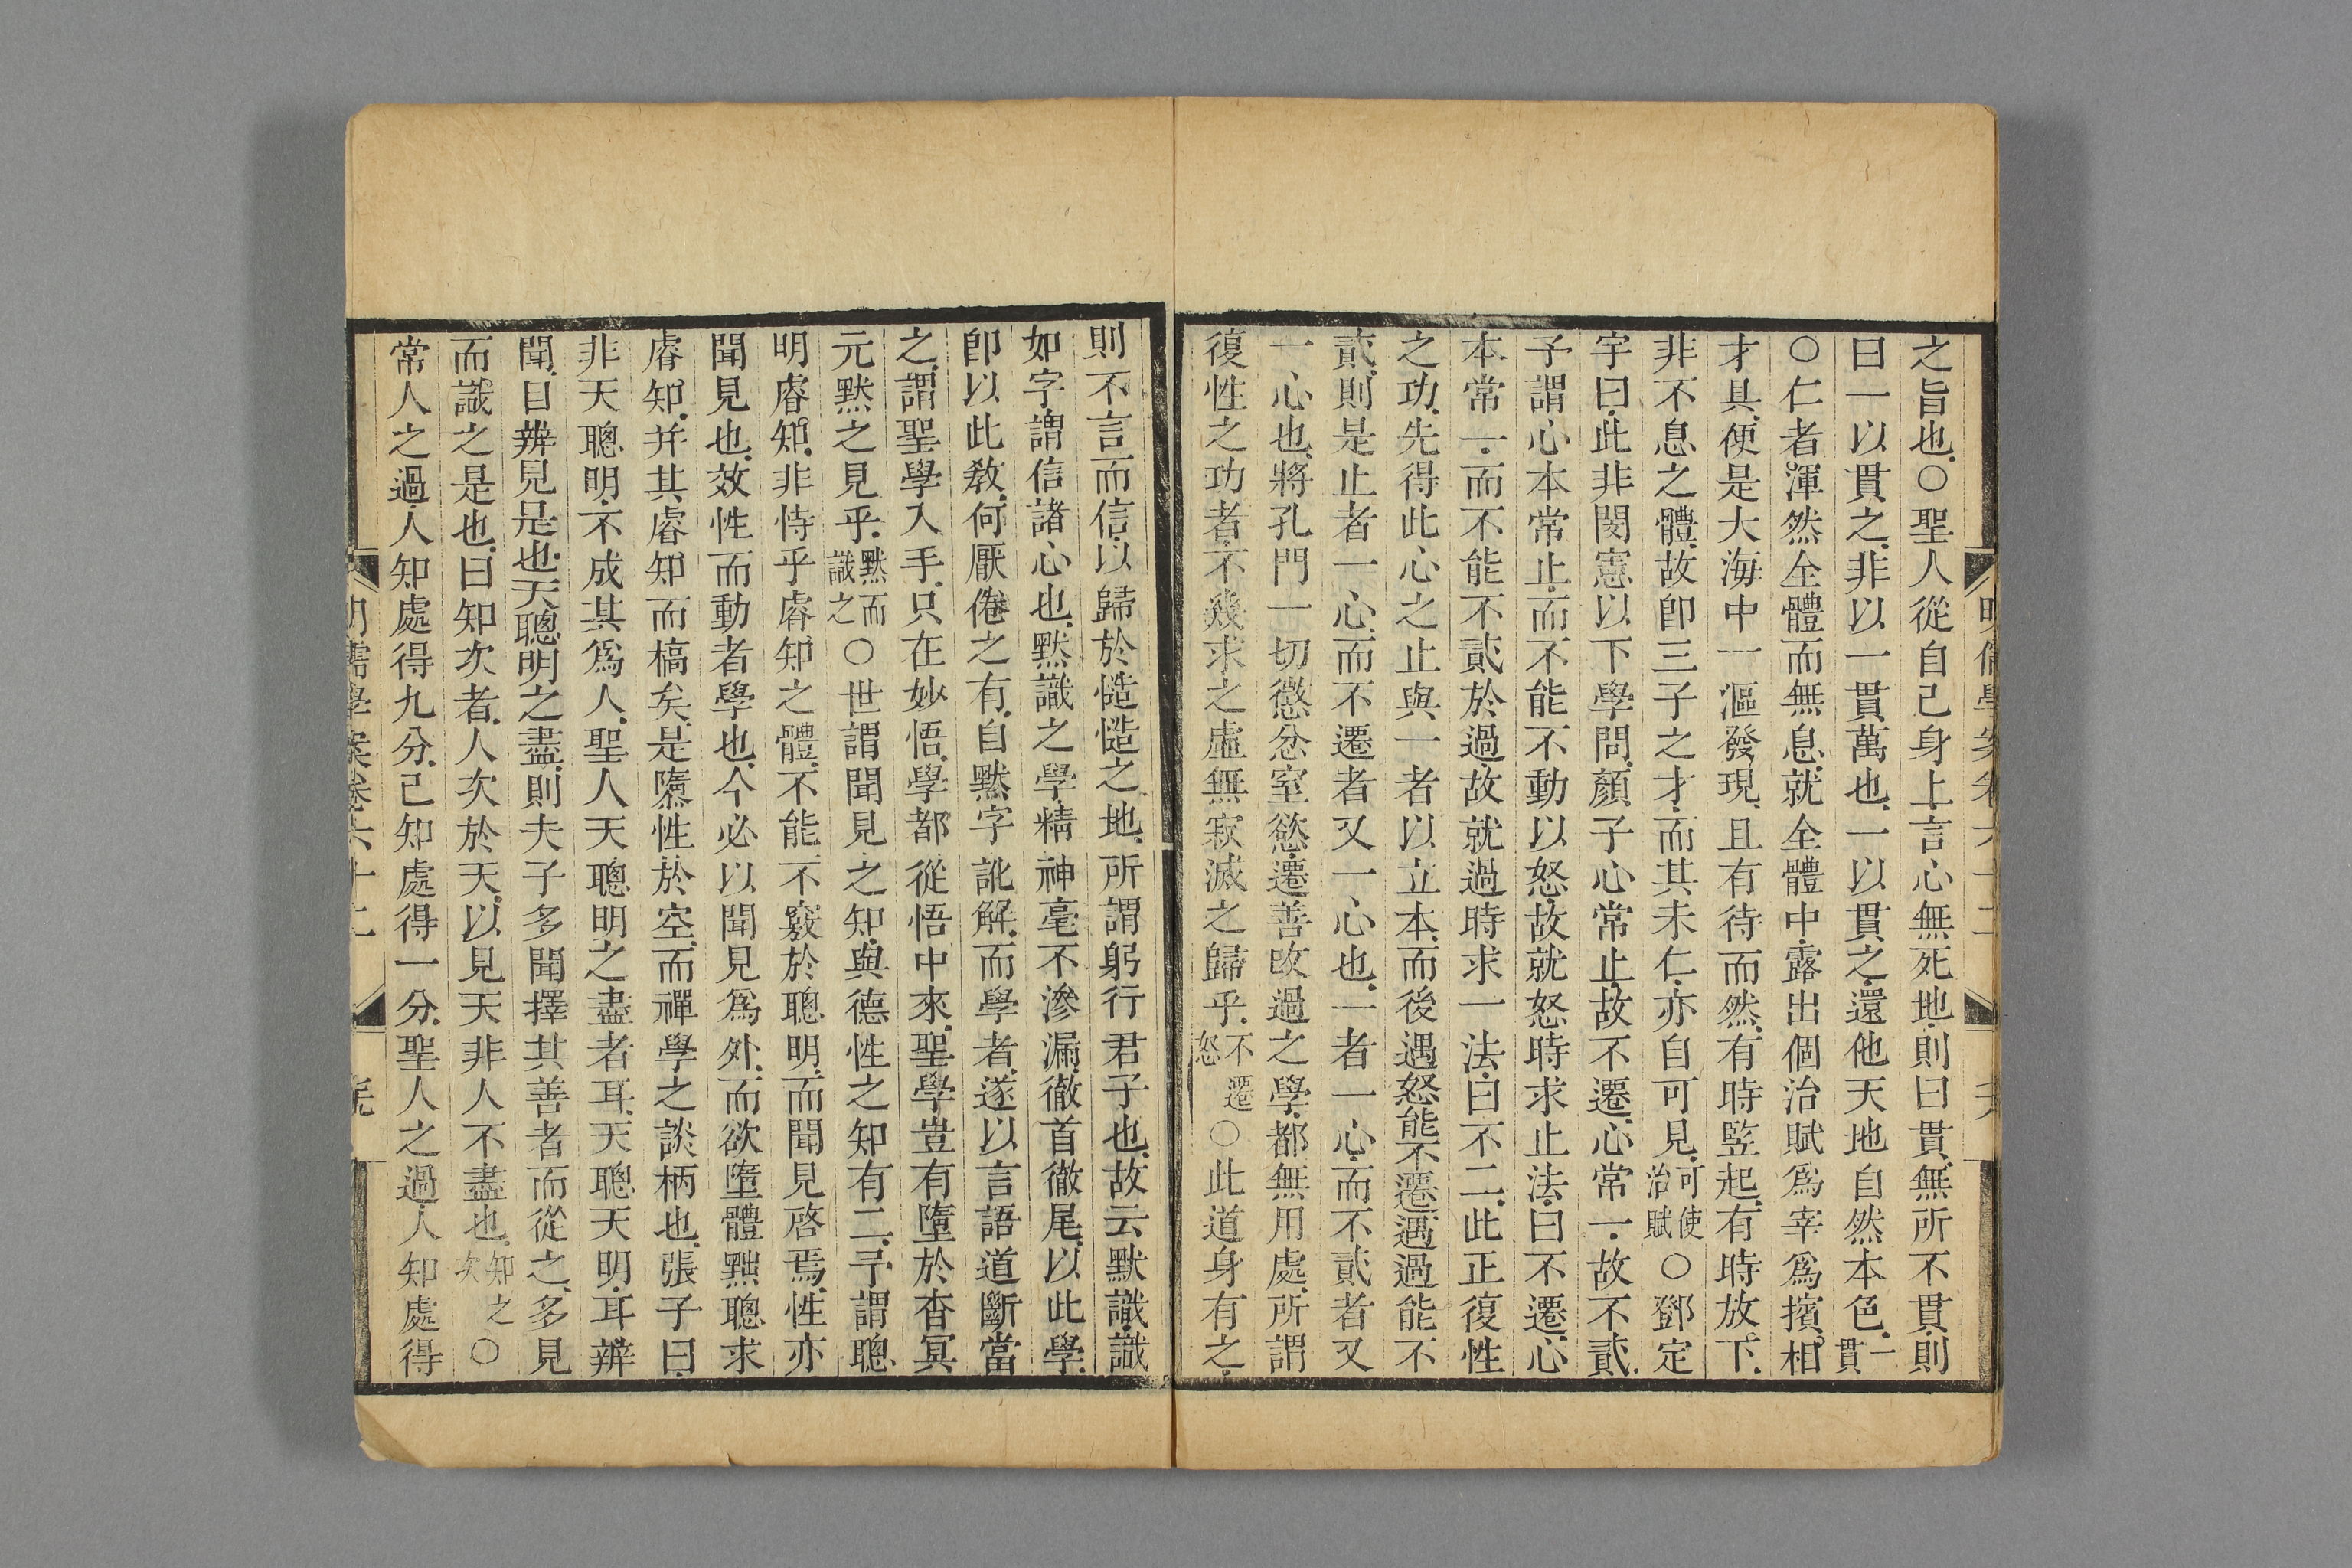 之旨也○聖人從自己身上言心無死地則曰貫無所不貫則
曰一以貫之非以一貫萬也一以貫之還他天地自然本色一貫
○仁者渾然全體而無息就全體中露出個治賦爲宰爲擯相
才具便是大海中一漚發現且有待而然有時監起有時放下
非不息之體故卽三子之才而其未仁亦自可見可使治賦○鄧定
宇曰此非閔憲以下學問顏子心常止故不遷心常一故不貳
予謂心本常止而不能不動以怒故就怒時求止法曰不遷心
本常一而不能不貳於過故就過時求一法曰不二此正復性
之功先得此心之止與一者以立本而後遇怒能不遷遇過能不
貳則是止者一心而不遷者又一心也一者一心而不貳者又
一心也將孔門一切懲忿窒慾遷善改過之學都無用處所謂
復性之功者不幾求之虛無寂滅之歸乎不遷怒○此道身有之
則不言而信以歸於慥慥之地所謂躬行君子也故云默識識
如字謂信諸心也默識之學精神毫不滲漏徹首徹尾以此學
卽以此敎何厭倦之有自默字訛解而學者遂以言語道斷當
之謂聖學入手只在妙悟學都從悟中來聖學豈有墮於杳冥
元默之見乎默而識之○世謂聞見之知與德性之知有二予謂聰
明睿知非恃乎睿知之體不能不竅於聰明而聞見啓焉性亦
聞見也效性而動者學也今必以聞見爲外而欲墮體黜聰求
睿知并其睿知而槁矣是隳性於空而禪學之談柄也張子曰
非天聰明不成其爲人聖人天聰明之盡者耳天聰天明耳辨
聞目辨見是也天聰明之盡則夫子多聞擇其善者而從之多見
而識之是也曰知次者人次於天以見天非人不盡也知之次○
常人之過人知處得九分己知處得一分聖人之過人知處得